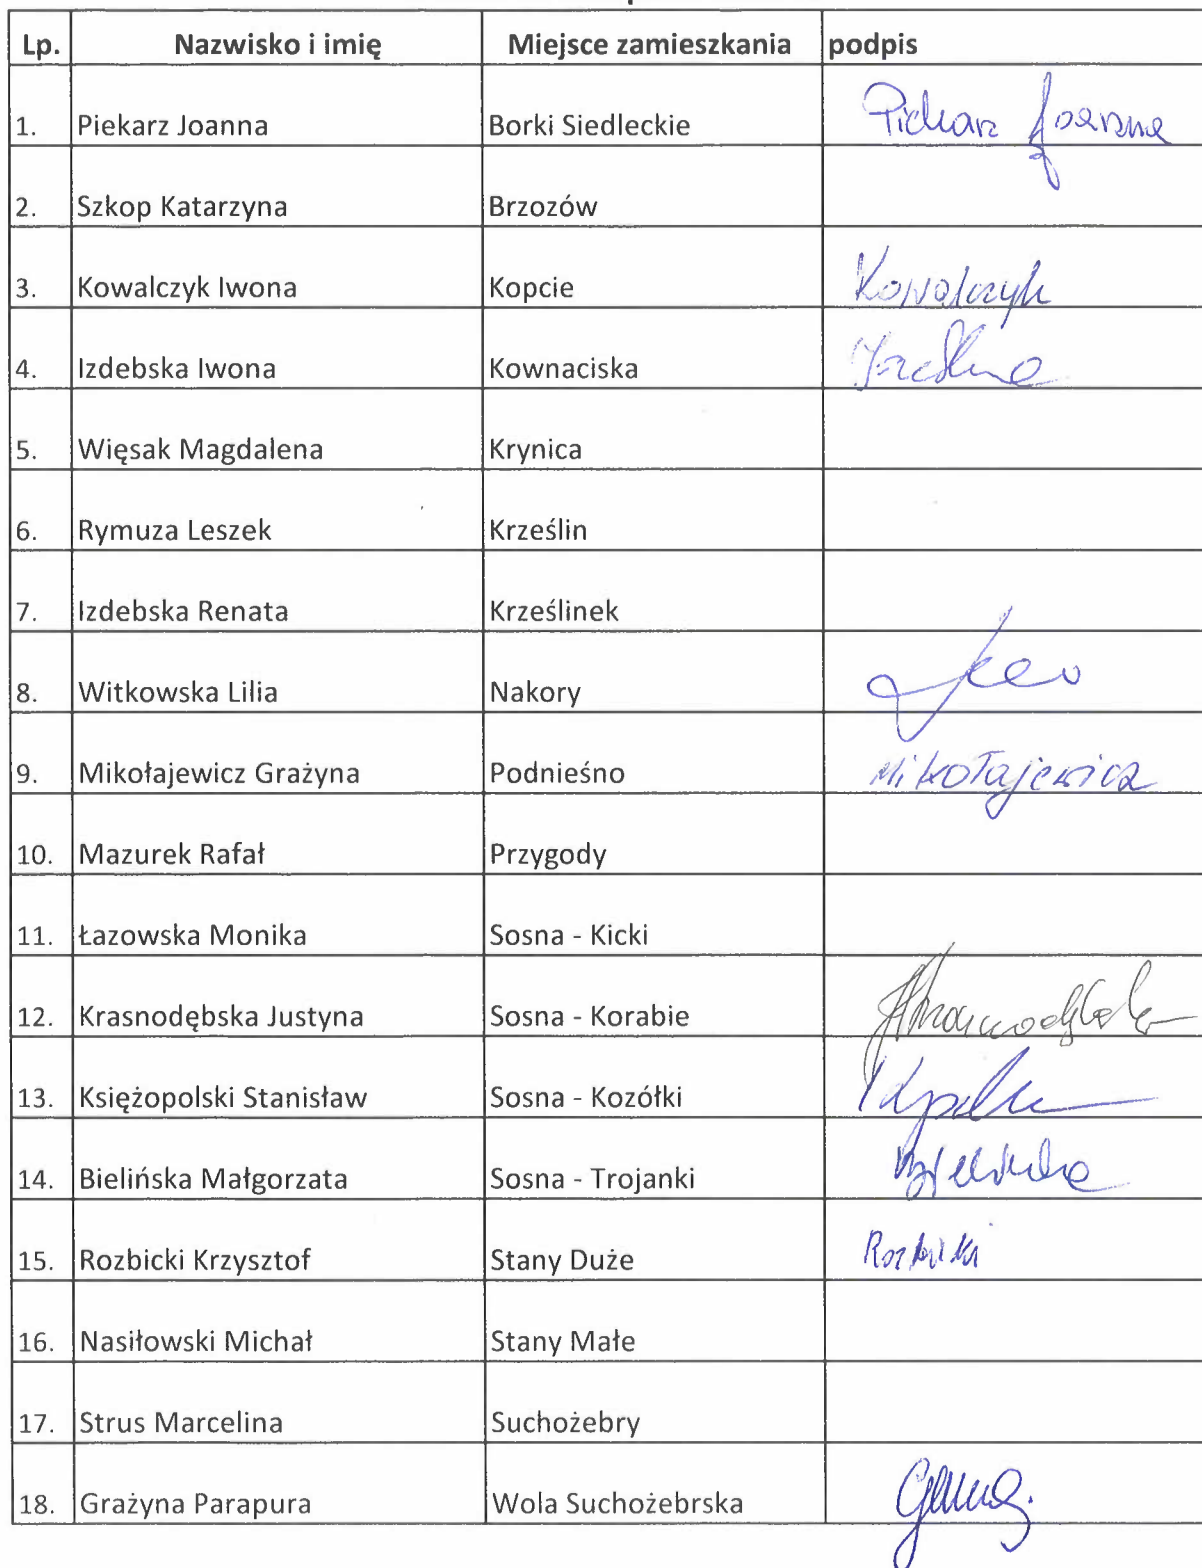 Lp. Nazwisko i imię Miejsce zamieszkania podpis
1. Piekarz Joanna Borki Siedleckie Piekarz Joanna
2. Szkop Katarzyna Brzozów
3. Kowalczyk Iwona Kopcie Kowalczyk
4. Izdebska Iwona Kownaciska
5. Więsak Magdalena Krynica
6. Rymuza Leszek Krześlin
7. Izdebska Renata Krześlinek
8. Witkowska Lilia Nakory
9. Mikołajewicz Grażyna Podnieśno Mikołajewicz
10. Mazurek Rafał Przygody
11. Łazowska Monika Sosna - Kicki
12. Krasnodębska Justyna Sosna - Korabie
13. Księżopolski Stanisław Sosna - Kozółki
14. Bielińska Małgorzata Sosna - Trojanki
15. Rozbicki Krzysztof Stany Duże Rozbicki
16. Nasiłowski Michał Stany Małe
17. Strus Marcelina Suchożebry
18. Grażyna Parapura Wola Suchożebrska